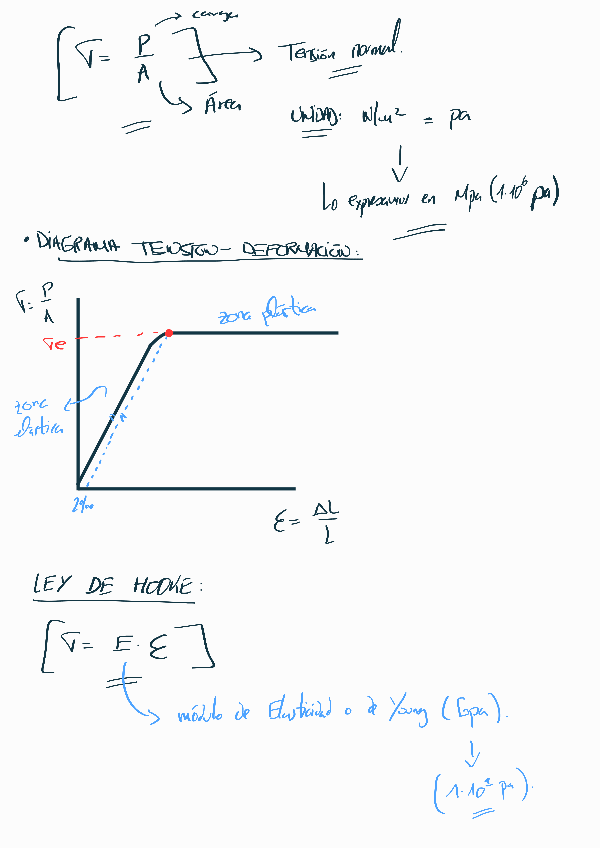 [σ = P/A] → Tensión normal.
carga
Área
UNIDAD: N/m² = pa
Lo expresamos en Mpa (1·10⁶ pa)
• DIAGRAMA TENSION - DEFORMACIÓN:
σ = P/A
zona plástica
σe
zona elástica
2‰
ε = ΔL/L
LEY DE HOOKE:
[σ = E · ε]
módulo de Elasticidad o de Young (Gpa).
(1·10⁹ pa).